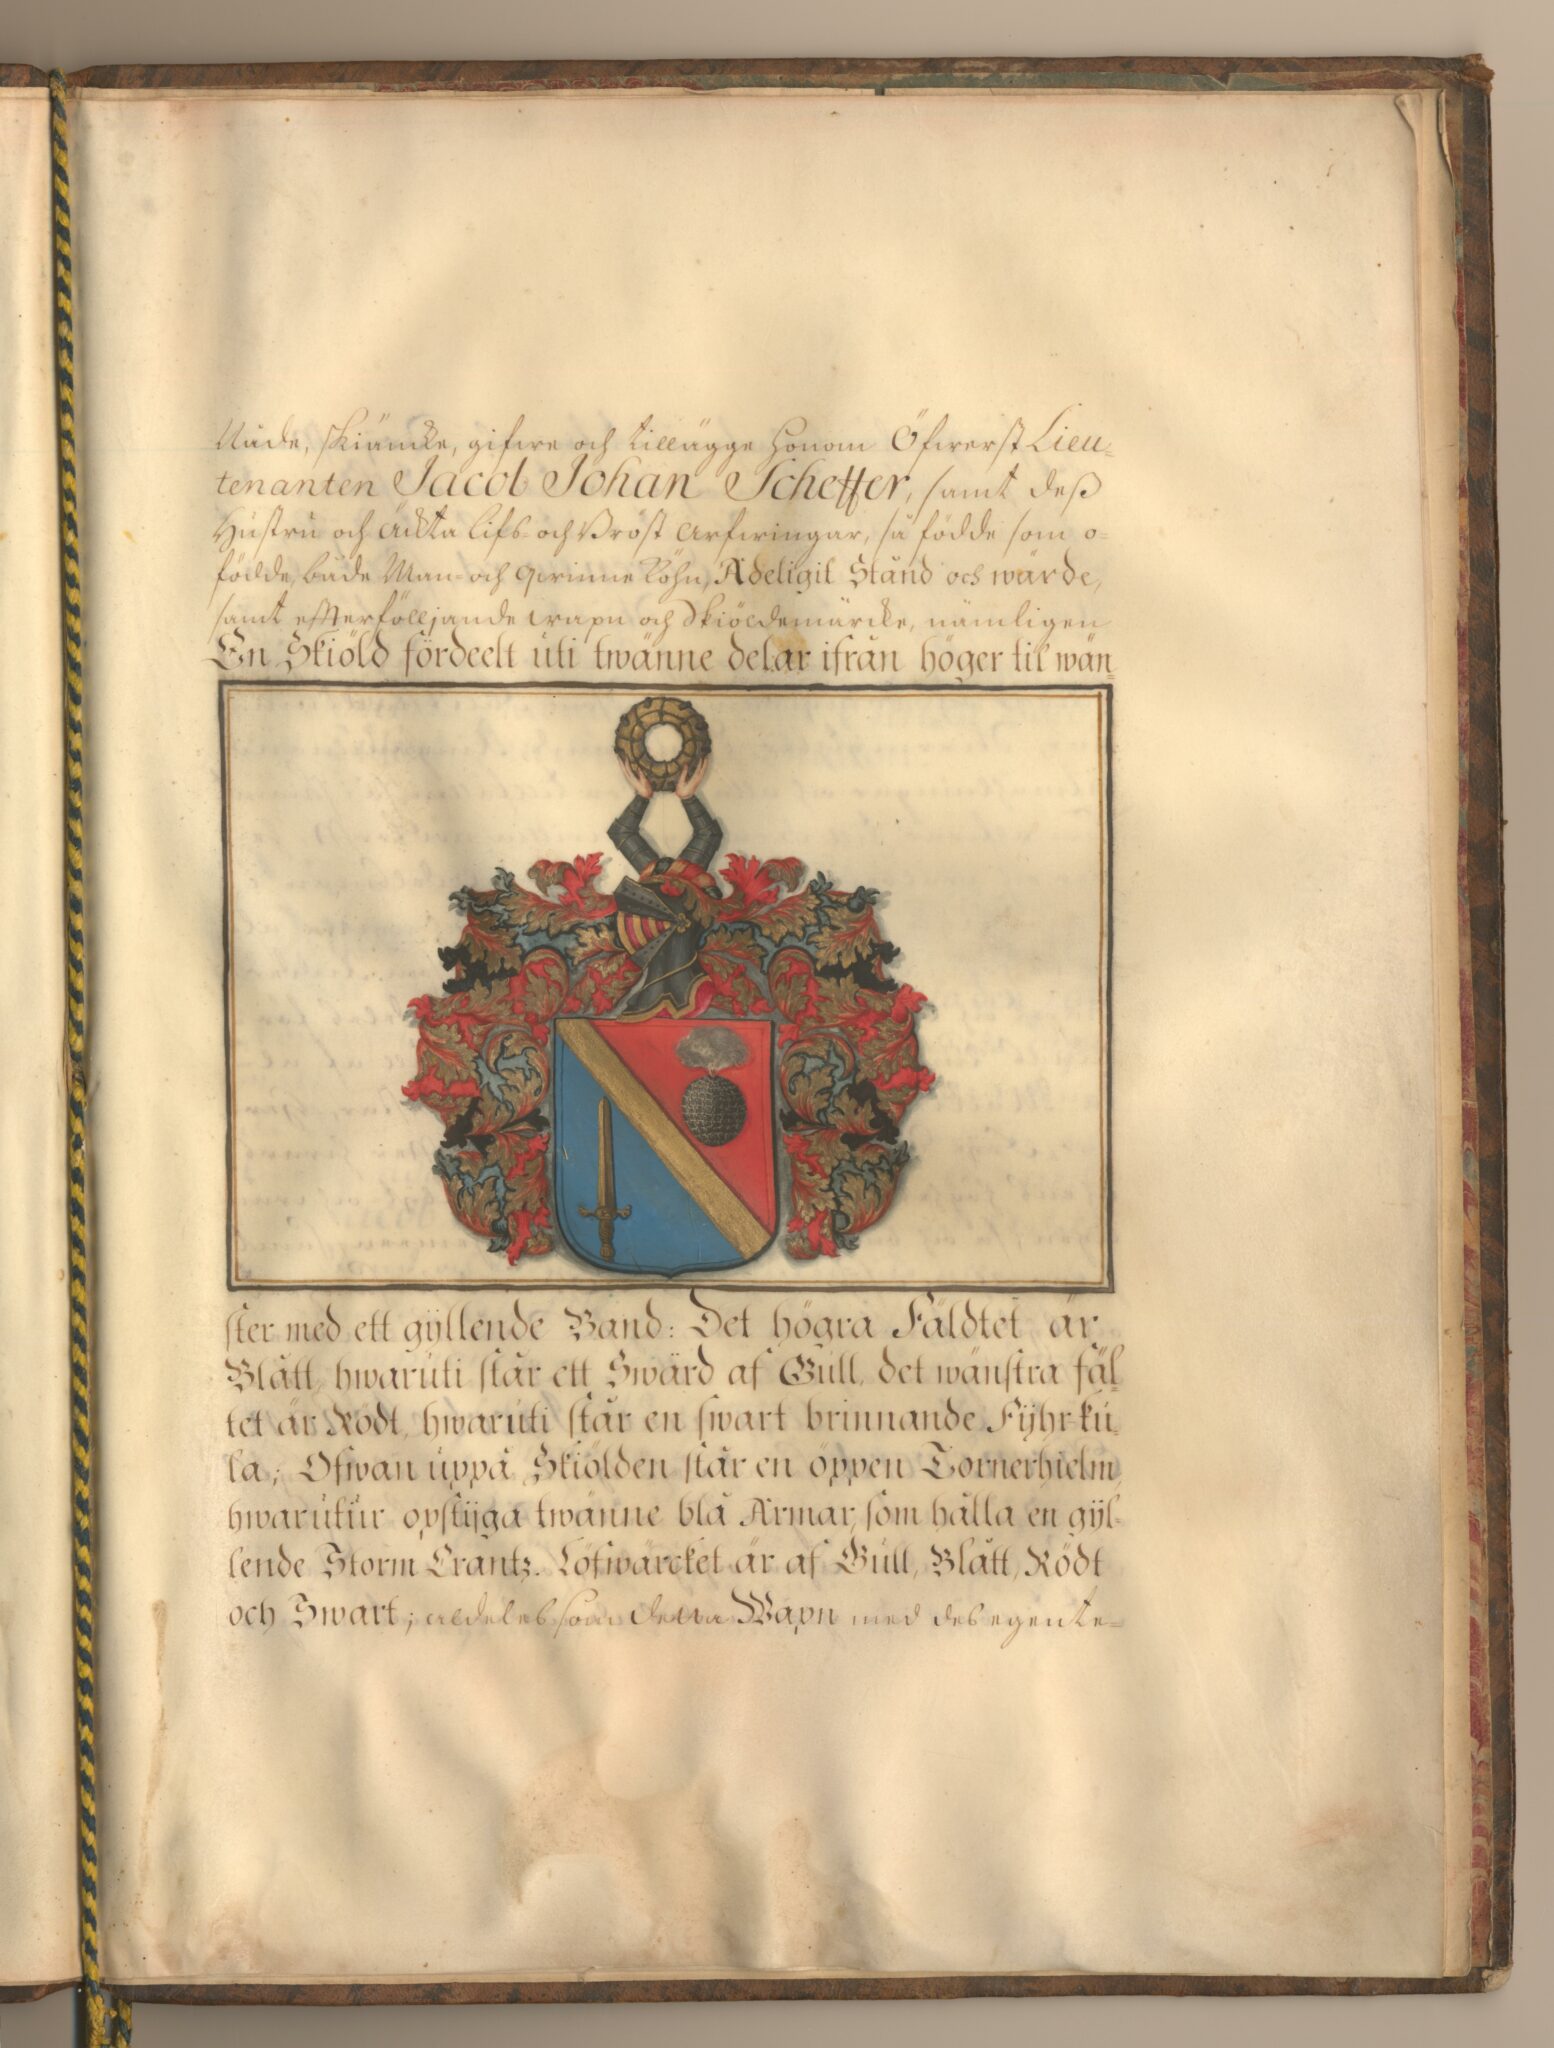 Nåde, skiäncke, gifwe och tillägge Honom Öfwerst Lieu-
tenanten Jacob Johan Scheffer, samt deß
Hustru och Ächta Lifs- och Bröst Arfwingar, så födde som o-
födde, både Man- och Qwinne Köhn, Adeligit Stånd och wärde,
samt effterfölljande wapn och Skiöldemärcke, nämligen
En Skiöld fördeelt uti twänne delar ifrån höger til wän-
ster med ett gyllende Band: Det högra Fäldtet är
Blått, hwaruti står ett Swärd af Gull, det wänstra fäl-
tet är Rödt, hwaruti står en swart brinnande Fyhr-ku-
la; Ofwan uppå Skiölden står en öppen Tornerhielm,
hwarutur opstijga twänne blå Armar, som hålla en gyl-
lende Storm Crantz. Löfwärcket är af Gull, Blått, Rödt
och Swart; aldeles som detta Wapn med des egente-